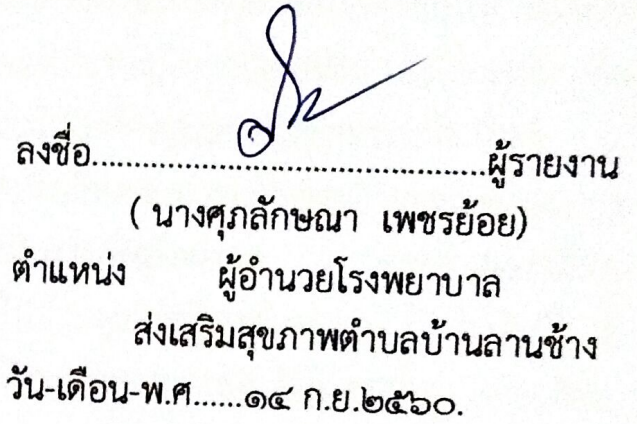 ลงชื่อ................................................ผู้รายงาน
( นางศุภลักษณา เพชรย้อย)
ตำแหน่ง ผู้อำนวยโรงพยาบาล
ส่งเสริมสุขภาพตำบลบ้านลานช้าง
วัน-เดือน-พ.ศ......๑๔ ก.ย.๒๕๖๐.